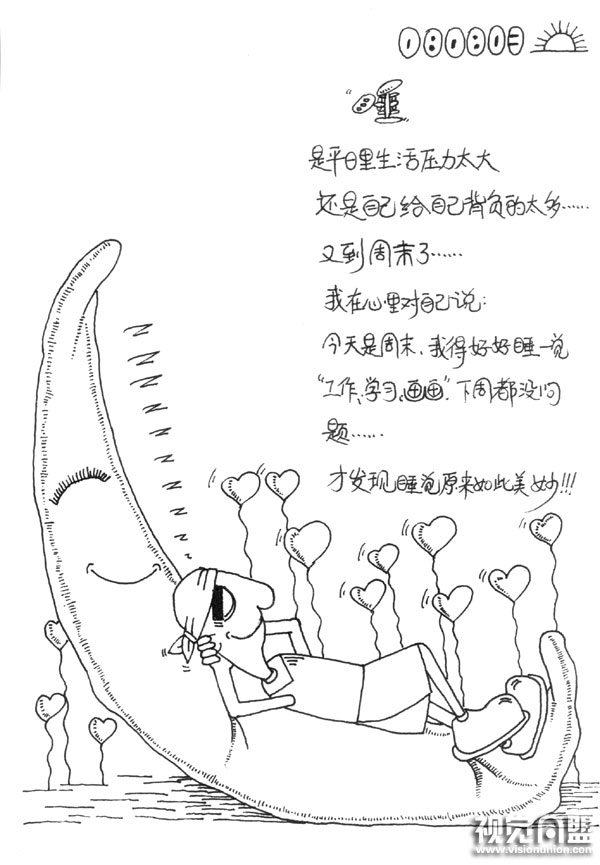 "睡
是平日里生活压力太大
还是自己给自己背负的太多……
又到周末了……
我在心里对自己说:
今天是周末、我得好好睡一说
"工作、学习、画画"、下周都没问
题……
才发现睡说原来如此美妙!!!
视觉同盟
www.visionunion.com